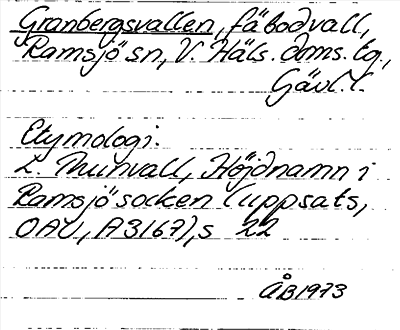 Granbergsvallen, fäbodvall,
Ramsjö sn, V. Häls. doms. tg.,
Gävl. l.
Etymologi:
L. Thunvall, Höjdnamn i
Ramsjö socken (uppsats,
OAU, A3167), s 22
ÅB 1973